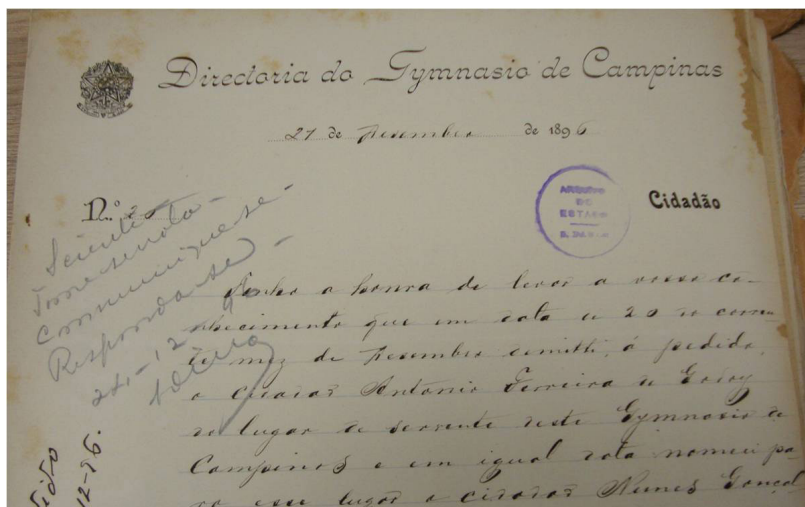 Directoria do Gymnasio de Campinas
21 de Dezembro de 1896
N.º
Cidadão
ARQUIVO
DO
ESTADO
S. PAULO
Sciente
Tome-se nota
Communique-se
Responda-se
24-12-96
Tenho a honra de levar a vosso co-
nhecimento que em data de 20 do corren-
te mez de Dezembro demitti, á pedido,
o cidadão Antonio Ferreira de Godoy
do lugar de servente deste Gymnasio de
Campinas e em igual data nomeei pa-
ra esse lugar o cidadão Nunes Gonçal
12-96.